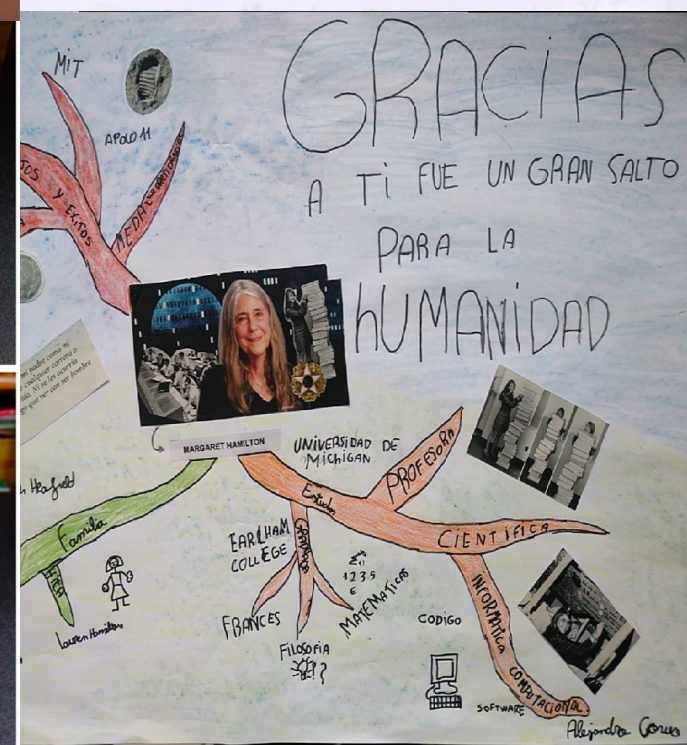 GRACIAS
A TI FUE UN GRAN SALTO
PARA LA
hUMANIDAD
MIT
APOLO 11
Y EXITOS
MARGARET HAMILTON
UNIVERSIDAD DE
MICHIGAN
PROFESORA
Estudios
CIENTIFICA
EARLHAM
COLLEGE
GRADUADA
1 2 3 5
6
FRANCES
FILOSOFIA
?
MATEMATICAS
INFORMATICA
COMPUTACIONAL
CODIGO
SOFTWARE
Familia
HIJA
Lauren Hamilton
Alejandra